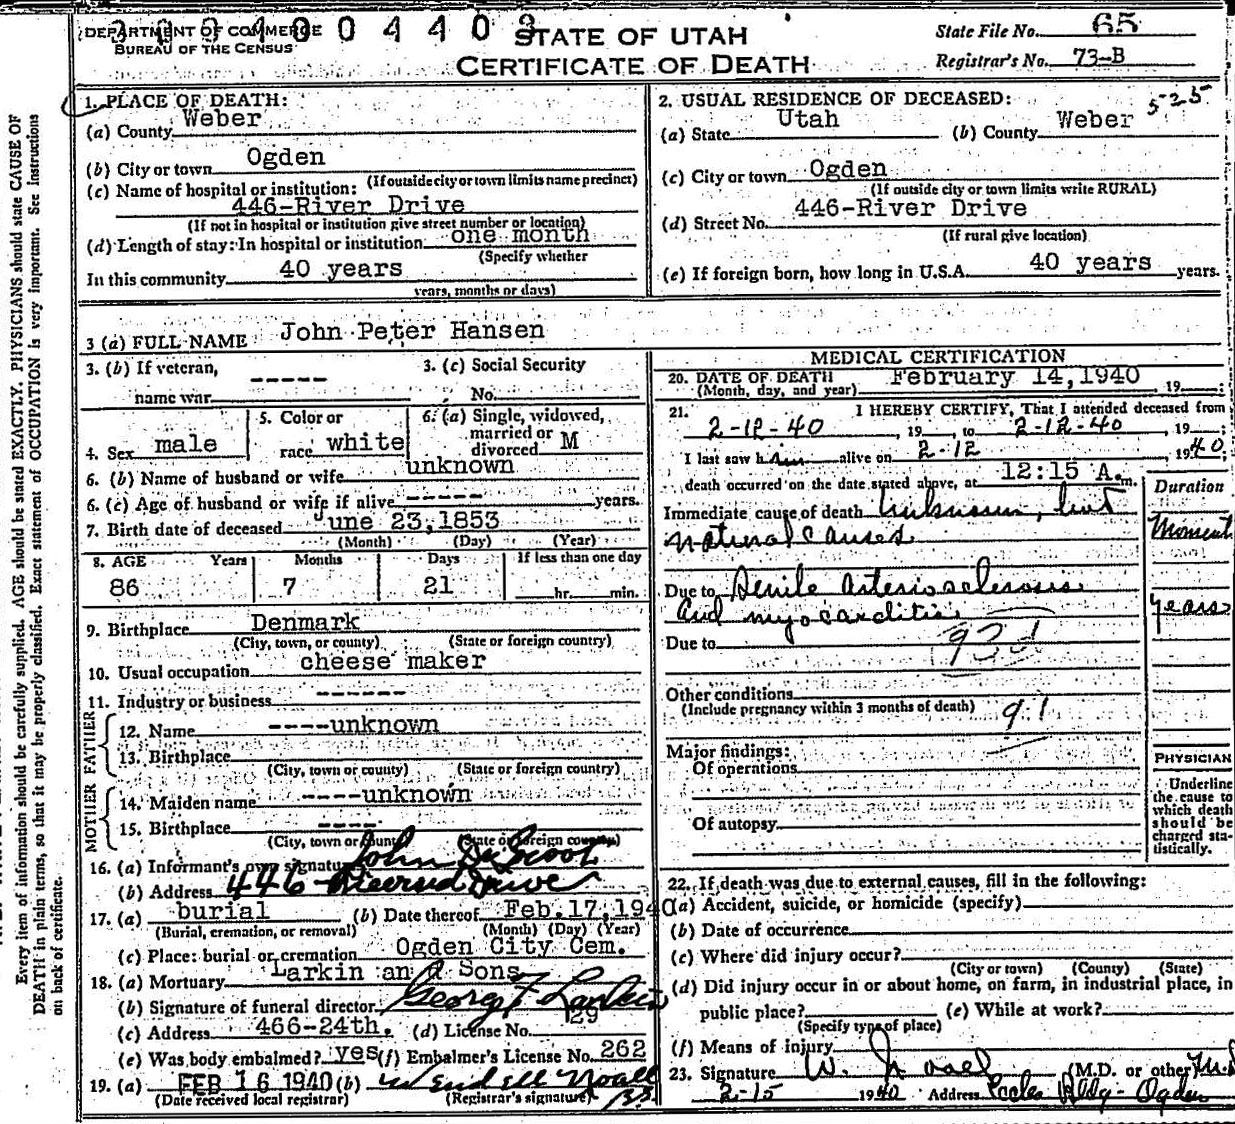 DEPARTMENT OF COMMERCE
BUREAU OF THE CENSUS
0 4 4 0
STATE OF UTAH
CERTIFICATE OF DEATH
State File No. 65
Registrar's No. 73-B
1. PLACE OF DEATH:
(a) County Weber
(b) City or town Ogden
(If outside city or town limits name precinct)
(c) Name of hospital or institution:
446-River Drive
(If not in hospital or institution give street number or location)
(d) Length of stay: In hospital or institution one month
(Specify whether
In this community 40 years
years, months or days)
2. USUAL RESIDENCE OF DECEASED: 5-25
(a) State Utah (b) County Weber
(c) City or town Ogden
(If outside city or town limits write RURAL)
(d) Street No. 446-River Drive
(If rural give location)
(e) If foreign born, how long in U.S.A. 40 years years.
3 (a) FULL NAME John Peter Hansen
3. (b) If veteran, name war -----
3. (c) Social Security No.
4. Sex male
5. Color or race white
6. (a) Single, widowed, married or divorced M
6. (b) Name of husband or wife unknown
6. (c) Age of husband or wife if alive ----- years.
7. Birth date of deceased June 23, 1853
(Month) (Day) (Year)
8. AGE Years Months Days If less than one day
86 7 21 hr. min.
9. Birthplace Denmark
(City, town, or county) (State or foreign country)
10. Usual occupation cheese maker
11. Industry or business ------
FATHER
12. Name ----unknown
13. Birthplace
(City, town or county) (State or foreign country)
MOTHER
14. Maiden name ----unknown
15. Birthplace ----
(City, town or county) (State or foreign country)
16. (a) Informant's own signature John
(b) Address 446 Drive
17. (a) burial (b) Date thereof Feb. 17, 1940
(Burial, cremation, or removal) (Month) (Day) (Year)
(c) Place: burial or cremation Ogden City Cem.
18. (a) Mortuary Larkin and Sons
(b) Signature of funeral director George F Larkin
(c) Address 466-24th. (d) License No. 129
(e) Was body embalmed? yes (f) Embalmer's License No. 262
19. (a) FEB 16 1940 (b) Wendell Noall
(Date received local registrar) (Registrar's signature)
MEDICAL CERTIFICATION
20. DATE OF DEATH February 14, 1940 , 19 ;
(Month, day, and year)
21. I HEREBY CERTIFY, That I attended deceased from
2-12-40 , 19 , to 2-12-40 , 19 ;
I last saw him alive on 2-12 , 1940;
death occurred on the date stated above, at 12:15 A. m.
Duration
Immediate cause of death Unknown, but
natural causes
Moment
Due to Senile arteriosclerosis
and myocarditis
years
Due to 93d
Other conditions
(Include pregnancy within 3 months of death) 91
Major findings:
Of operations
Of autopsy
PHYSICIAN
Underline
the cause to
which death
should be
charged sta-
tistically.
22. If death was due to external causes, fill in the following:
(a) Accident, suicide, or homicide (specify)
(b) Date of occurrence
(c) Where did injury occur?
(City or town) (County) (State)
(d) Did injury occur in or about home, on farm, in industrial place, in
public place? (e) While at work?
(Specify type of place)
(f) Means of injury
23. Signature W. (M.D. or other) M.D
2-15 1940 Address Eccles Bldg - Ogden
Every item of information should be carefully supplied. AGE should be stated EXACTLY. PHYSICIANS should state CAUSE OF
DEATH in plain terms, so that it may be properly classified. Exact statement of OCCUPATION is very important. See instructions
on back of certificate.